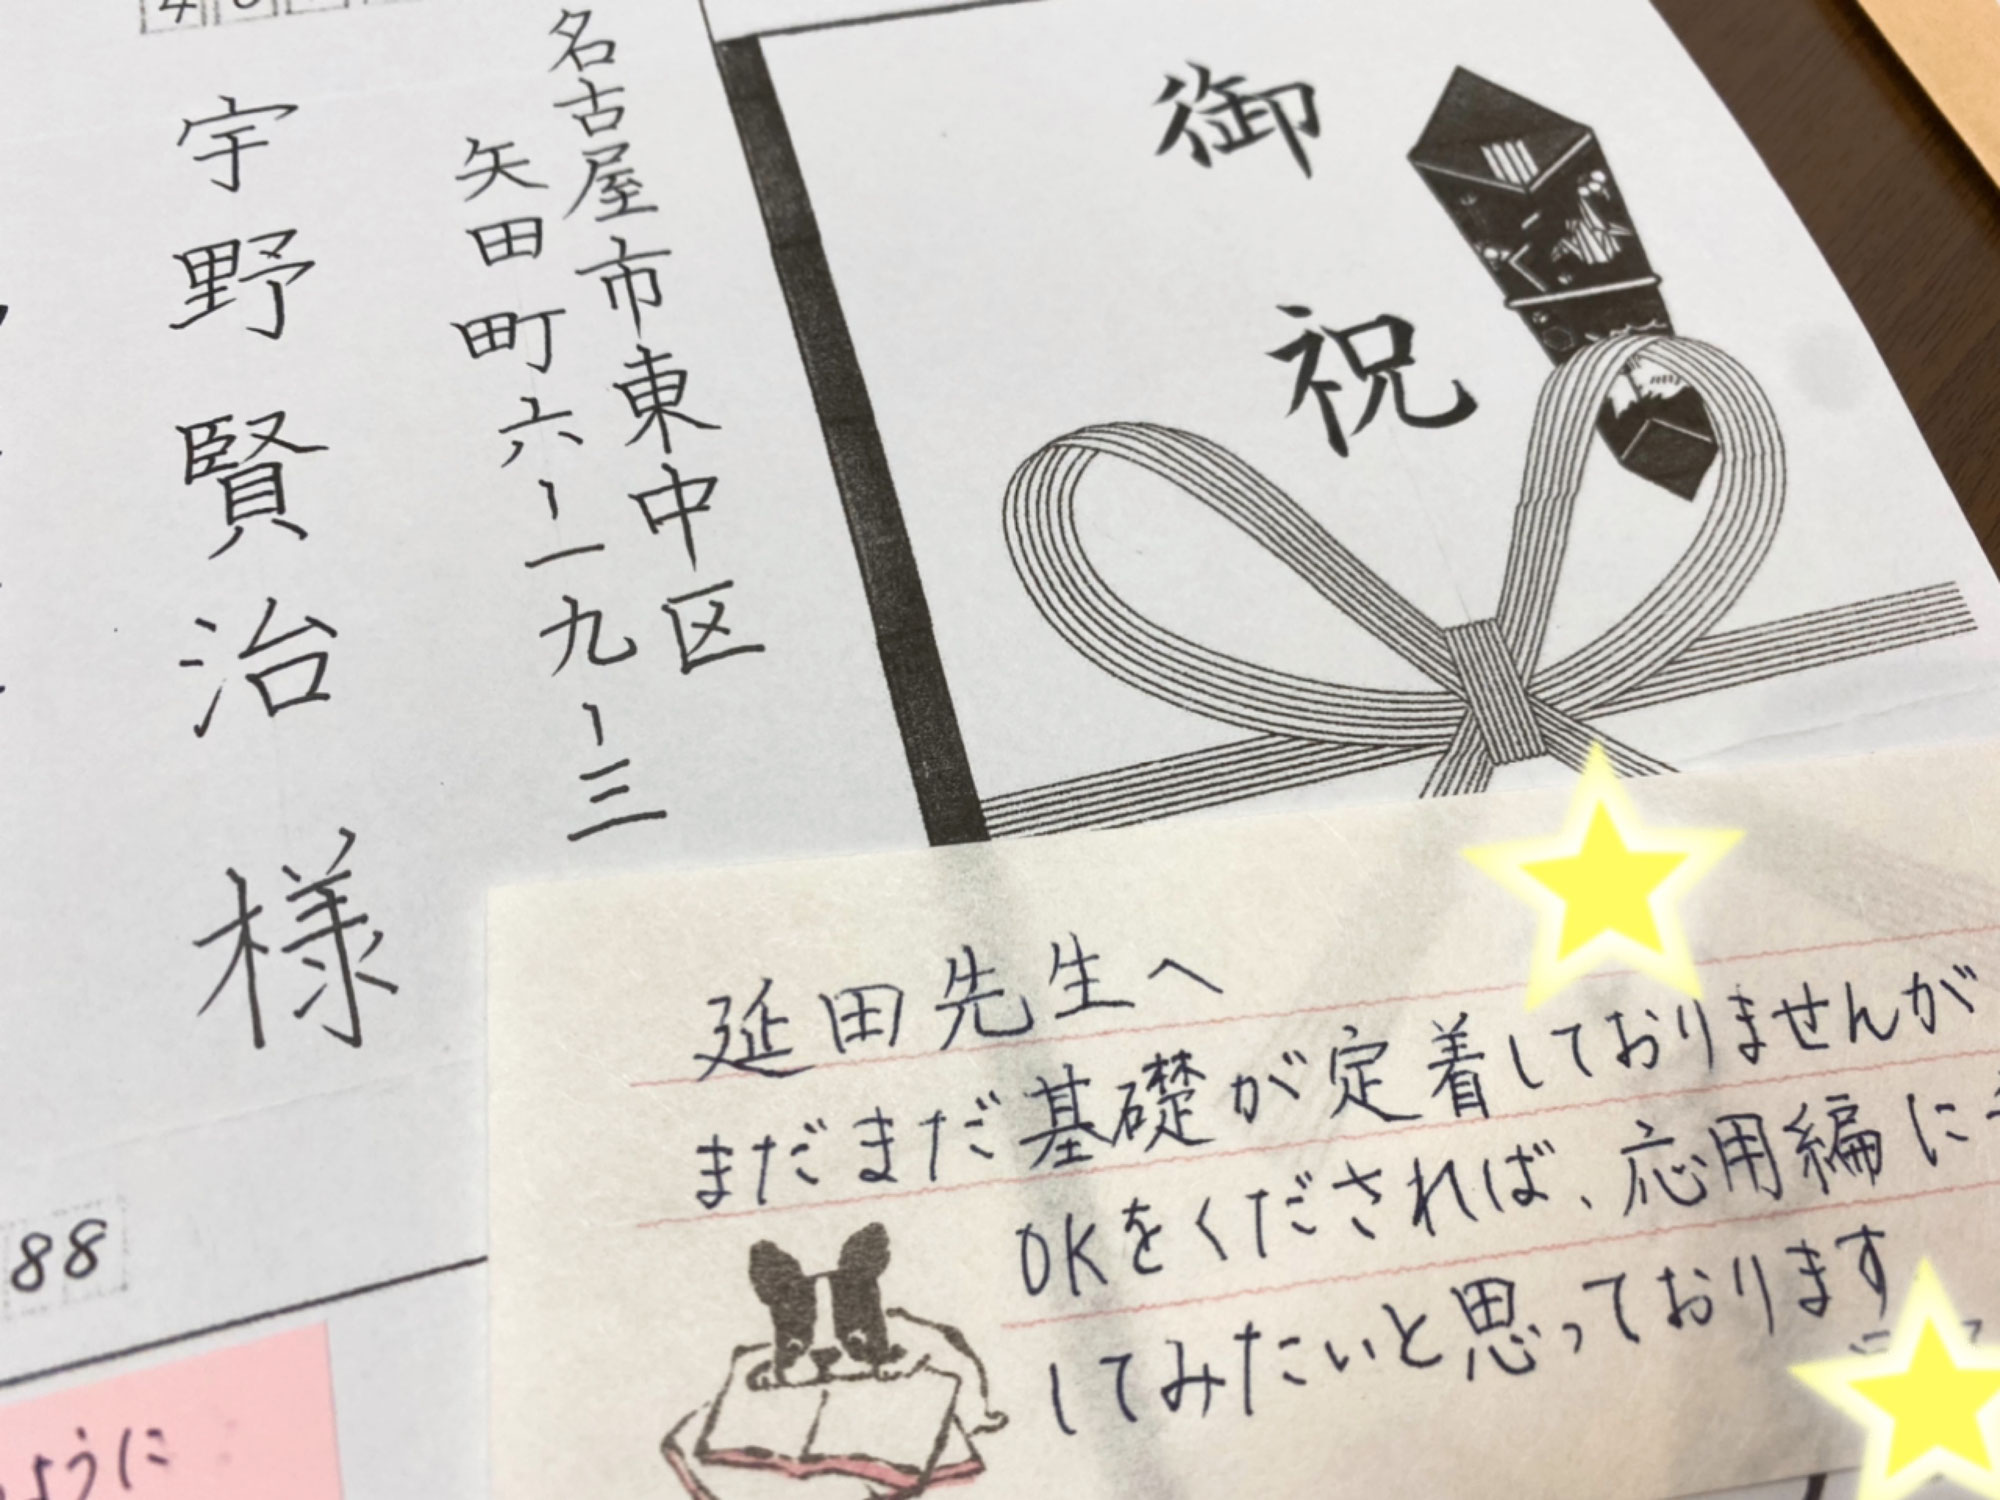 御祝
名古屋市東中区
矢田町六-一九-三
宇野賢治様
88
延田先生へ
まだまだ基礎が定着しておりませんが
OKをくだされば、応用編に
してみたいと思っております
ように